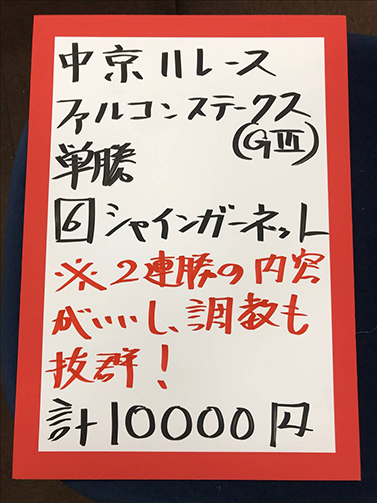 中京11レース
ファルコンステークス
(GIII)
単勝
6 シャインガーネット
※2連勝の内容
がいいし、調教も
抜群!
計10000円